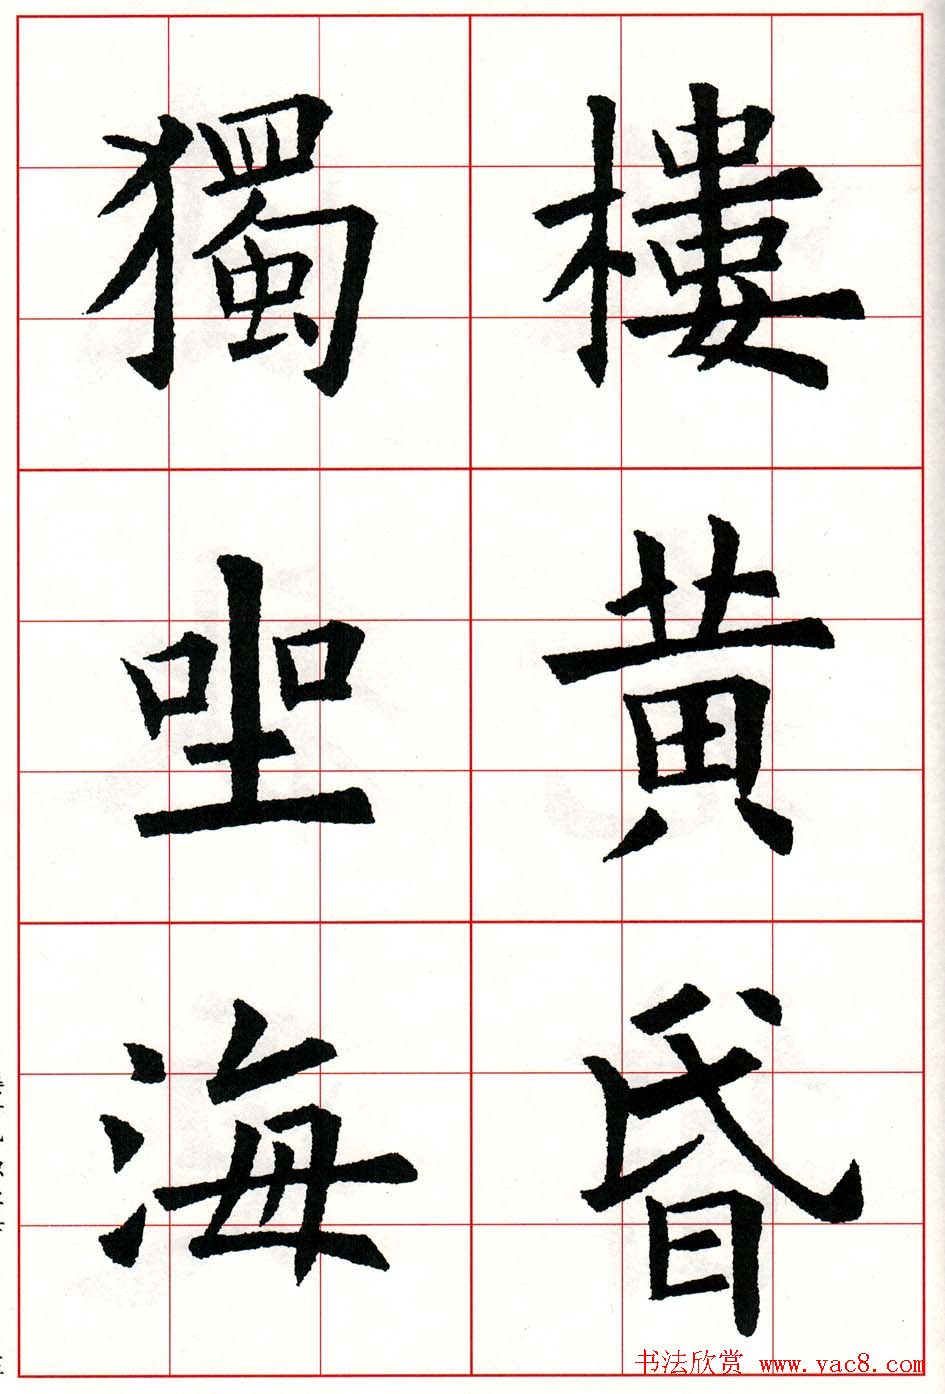 樓黃昏
獨坐海
书法欣赏 www.yac8.com